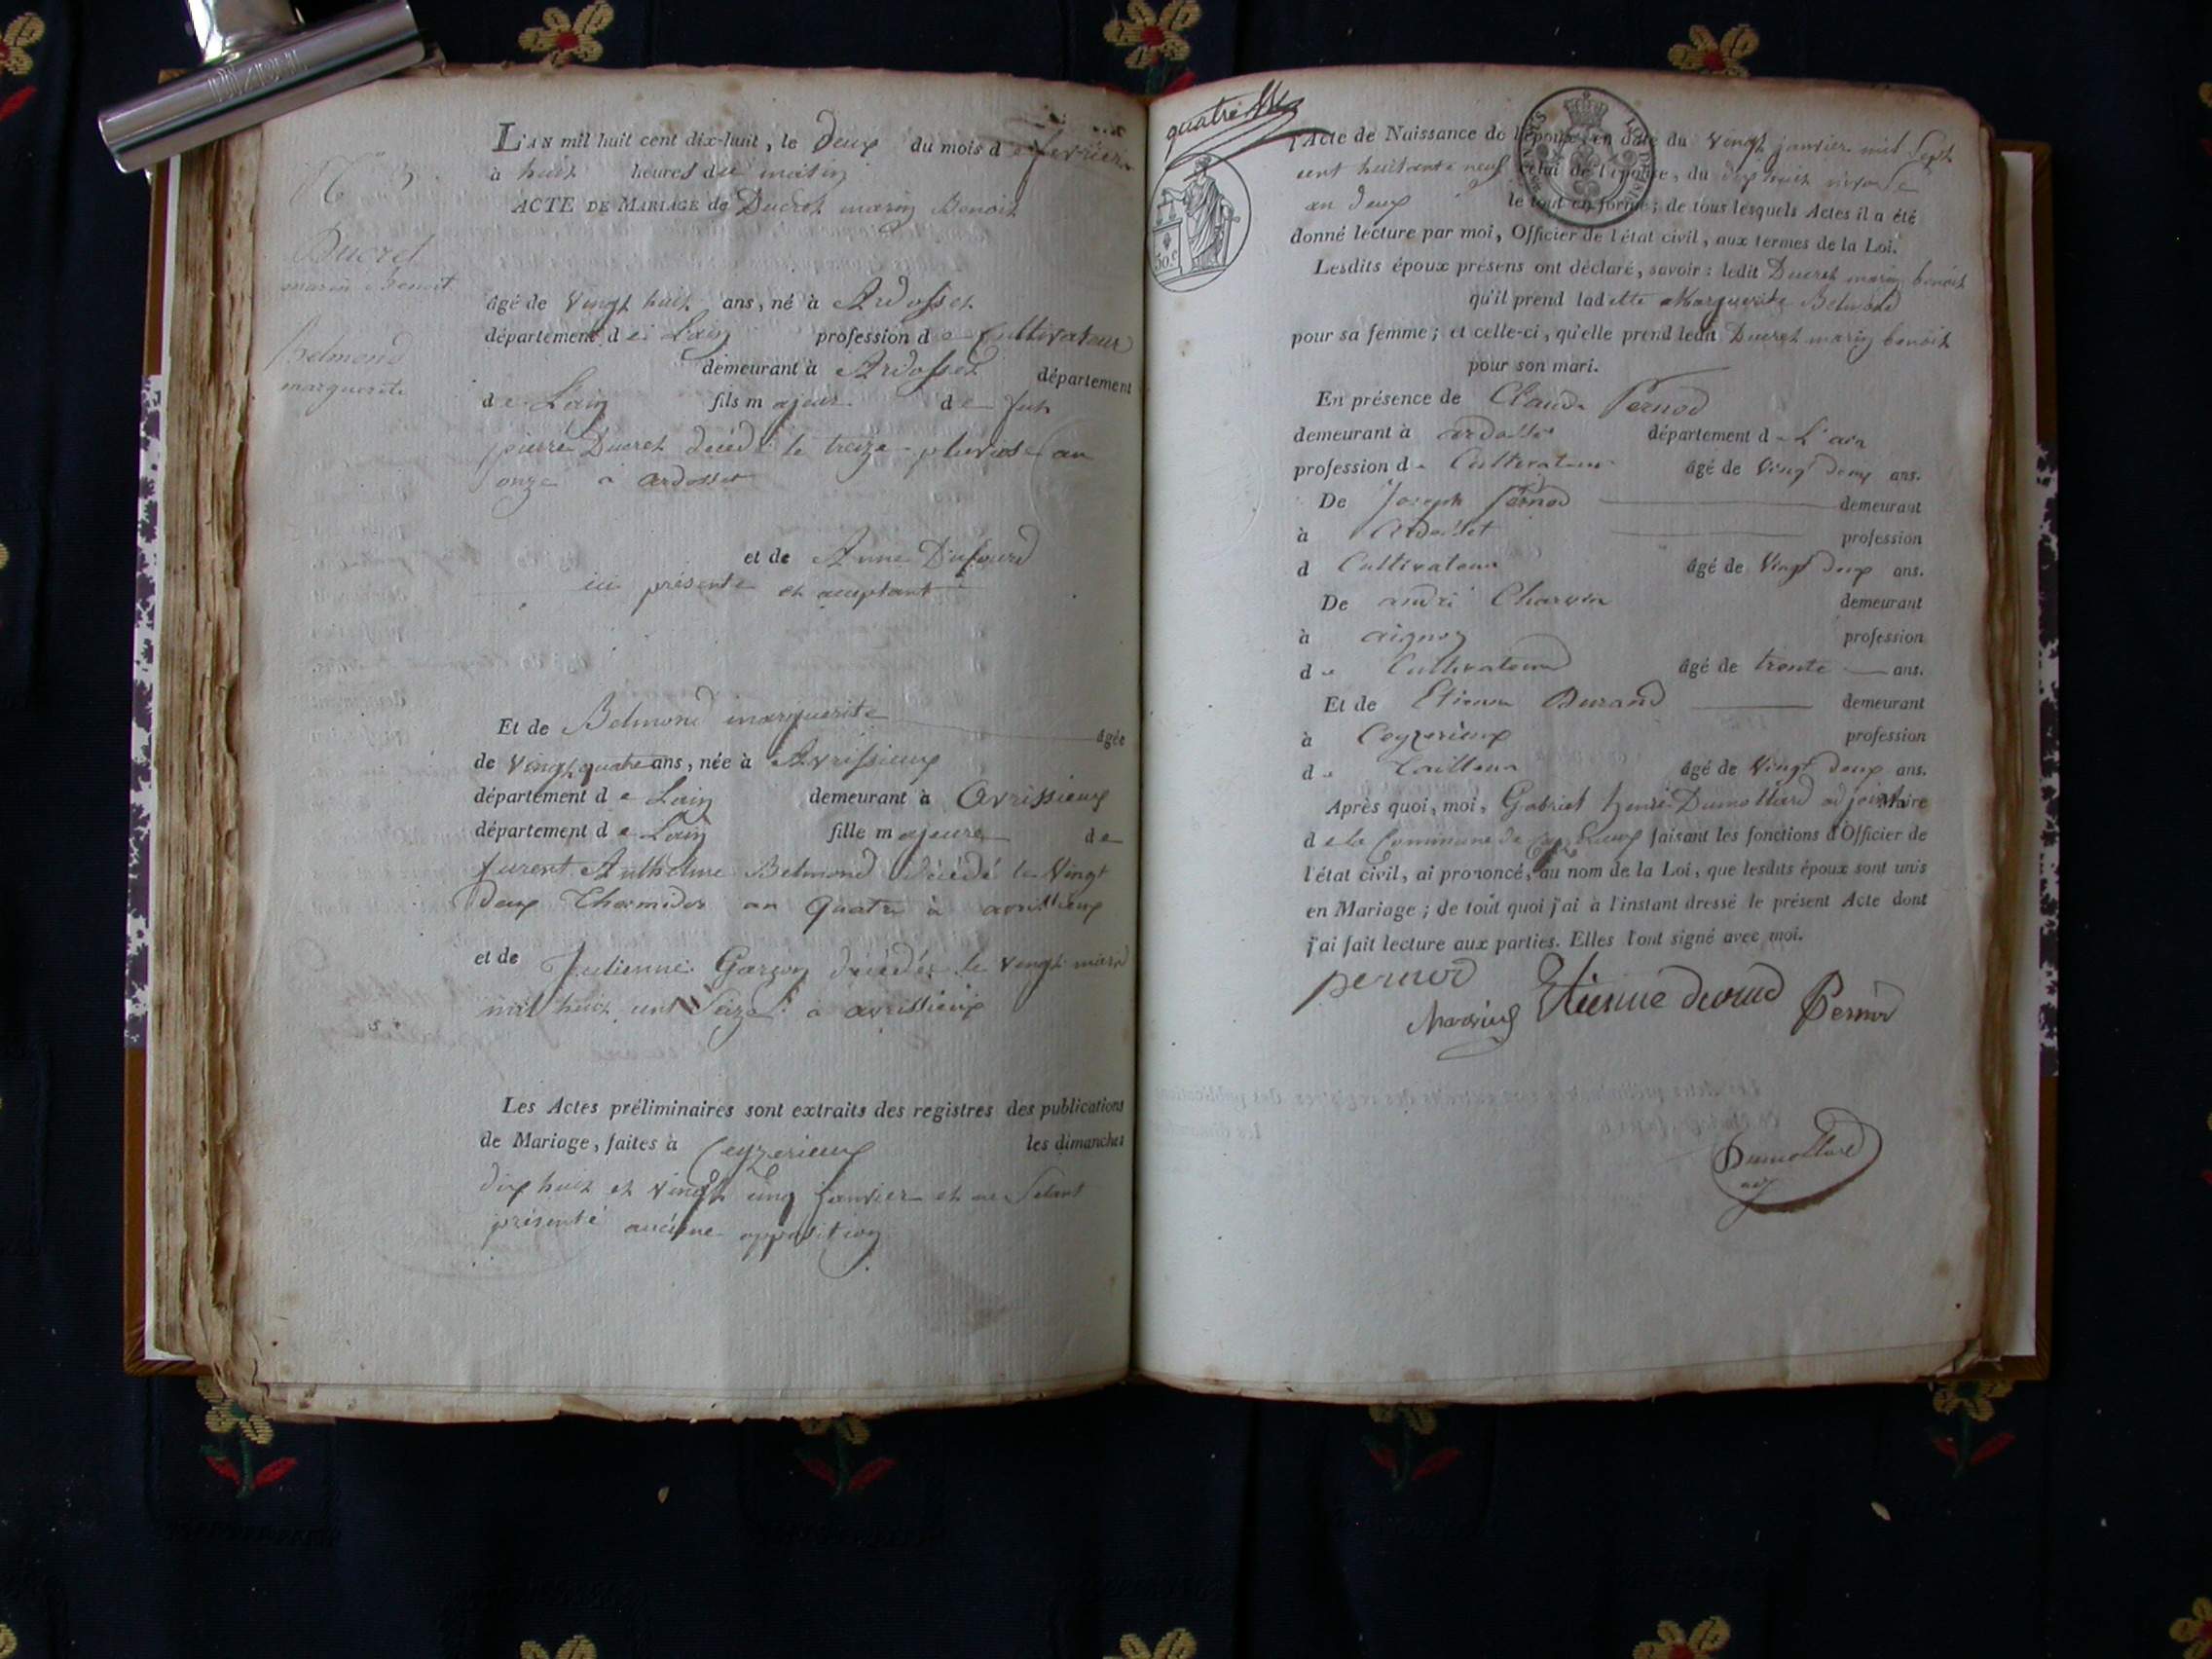 L'AN mil huit cent dix-huit, le Deux du mois de fevrier
à huit heures du matin
ACTE DE MARIAGE de Ducret marin Benoit
Ducret
marin Benoit
âgé de Vingt huit ans, né à Ardosset
département de L'ain profession de Cultivateur
Belmond
marguerite
demeurant à Ardosset département
de Lain fils majeur de feu
pierre Ducret décédé le treize pluviose an
onze à ardosset
et de Anne Dufourd
ici présente et acceptant
Et de Belmond marguerite âgée
de Vingt quatre ans, née à Avrissieux
département de Lain demeurant à Avrissieux
département de Lain fille majeure de
furent Anthelme Belmond décédé le Vingt
deux Thermidor an quatre à avrissieux
et de Julienne Garçon décédée le vingt mars
mil huit cent Seize à avrissieux
Les Actes préliminaires sont extraits des registres des publications
de Mariage, faites à Ceyzerieux les dimanches
dix huit et vingt cinq janvier et ne Setant
présenté aucune opposition
quatre
l'Acte de Naissance de l'époux en date du Vingt janvier mil Sept
cent huitante neuf celui de l'épouse, du dix huit nivose
an deux le tout en forme; de tous lesquels Actes il a été
donné lecture par moi, Officier de l'état civil, aux termes de la Loi.
50.c
Lesdits époux présens ont déclaré, savoir: ledit Ducret marin benoit
qu'il prend ladette Marguerite Belmond
pour sa femme; et celle-ci, qu'elle prend ledit Ducret marin benoit
pour son mari.
En présence de Claude Pernod
demeurant à ardosset département de L'ain
profession de Cultivateur âgé de Vingt deux ans.
De Joseph Pernod demeurant
à Ardosset profession
d Cultivateur âgé de Vingt deux ans.
De andré Charvin demeurant
à aignoz profession
de Cultivateur âgé de trente ans.
Et de Etienne Durand demeurant
à Ceyzerieux profession
de Tailleur âgé de Vingt deux ans.
Après quoi, moi, Gabriel henri Dumollard adjoint Maire
de la Commune de Ceyzerieux faisant les fonctions d'Officier de
l'état civil, ai prononcé, au nom de la Loi, que lesdits époux sont unis
en Mariage; de tout quoi j'ai à l'instant dressé le présent Acte dont
j'ai fait lecture aux parties. Elles l'ont signé avec moi.
pernod
Etienne durand Pernod
Dumollard
adj